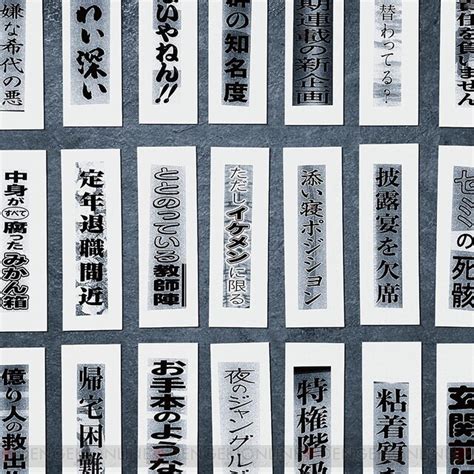 嫌な希代の悪
わい深い
いやねん!!
群の知名度
期連載の新企画
替わってる?
責任を負いません
中身がすべて腐ったみかん箱
定年退職間近
ととのっている教師陣
ただしイケメンに限る
添い寝ポジション
披露宴を欠席
セミの死骸
億り人の救出
帰宅困難
お手本のような
夜のジャングル
特権階級
粘着質
玄関前